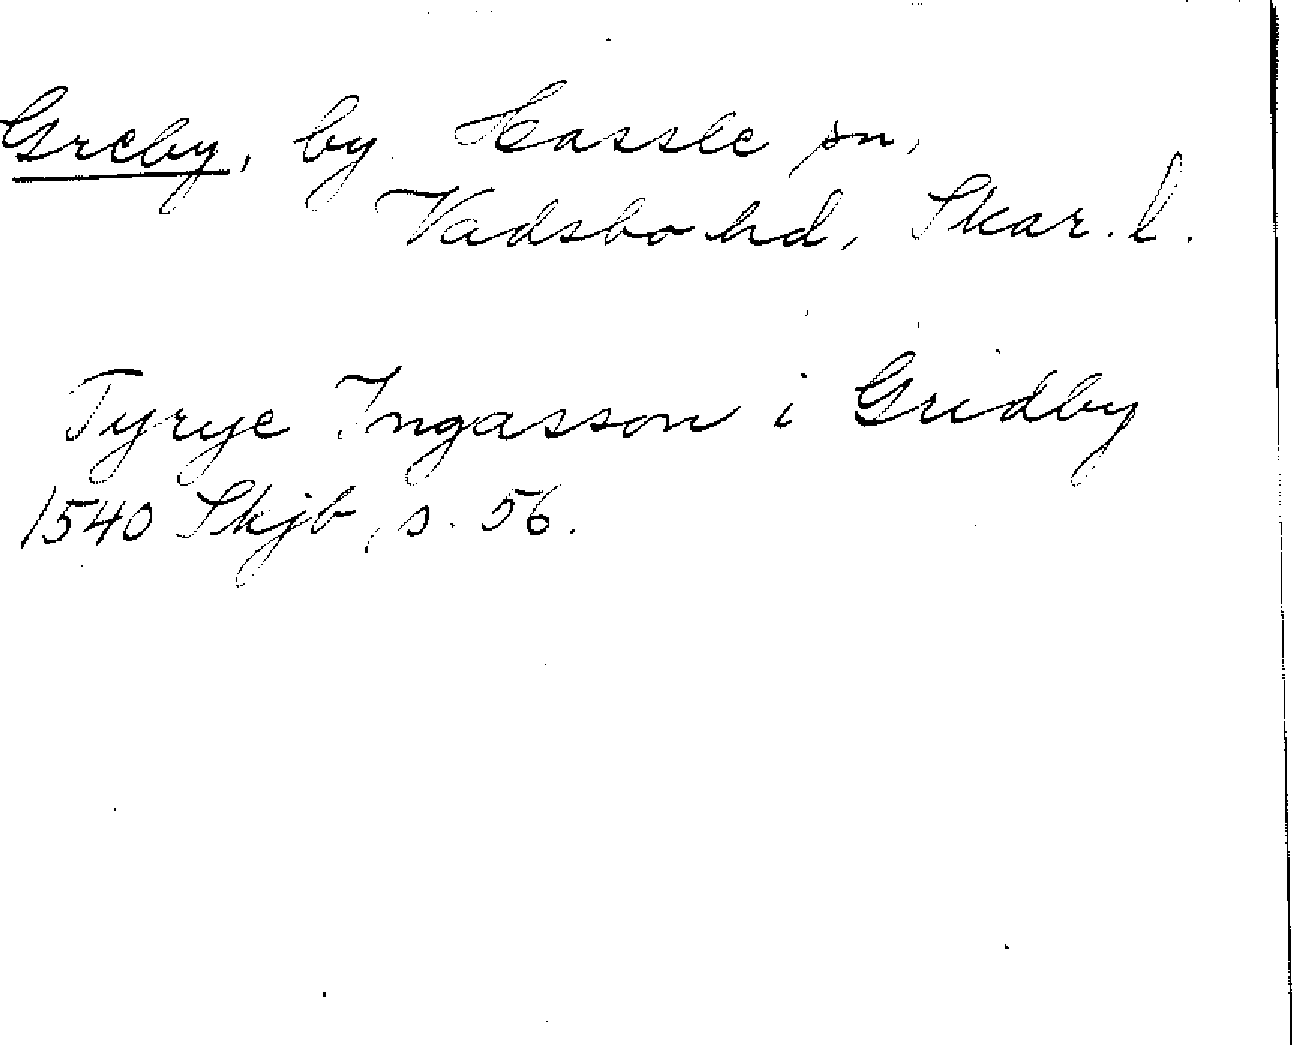 Greby, by. Hassle sn,
Vadsbo hd, Skar. l.
Tyrye Ingasson i Gridby
1540 Skjb, s. 56.